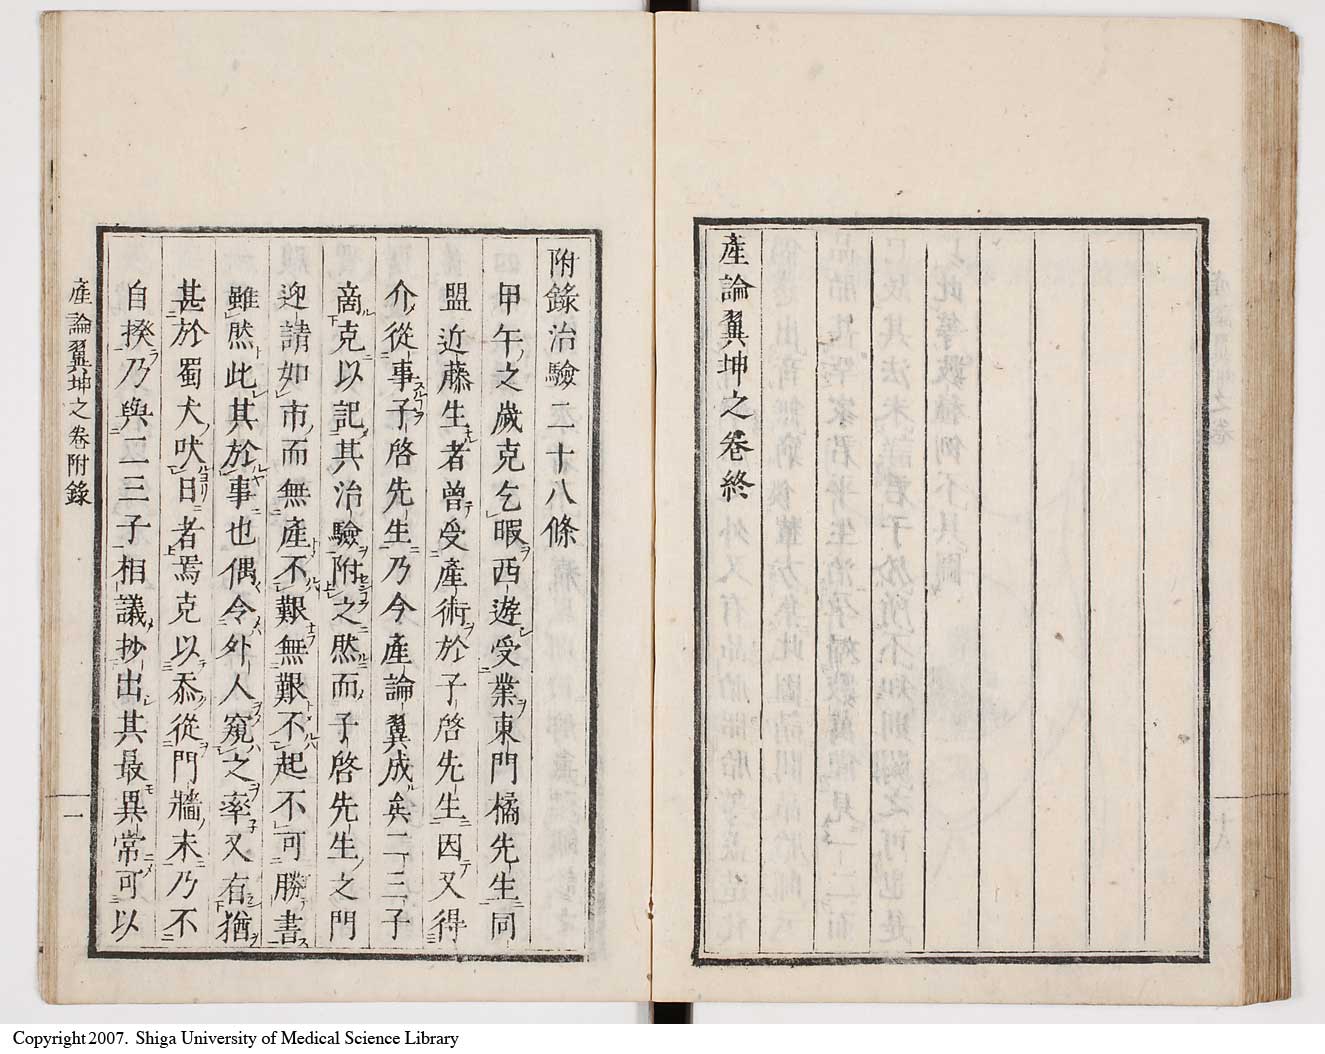 產論翼坤之卷終
附錄治驗二十八條
甲午之歲克乞暇西遊受業東門橘先生同
盟近藤生者曾受產術於子啓先生因又得
介從事子啓先生乃今產論翼成矣二三子
啇克以記其治驗附之然而子啓先生之門
迎請如市而無產不艱無艱不起不可勝書
雖然此其於事也偶令外人窺之率又有猶
甚於蜀犬吠日者焉克以忝從門牆末乃不
自揆乃與二三子相議抄出其最異常可以
產論翼坤之卷附錄
一
Copyright 2007. Shiga University of Medical Science Library